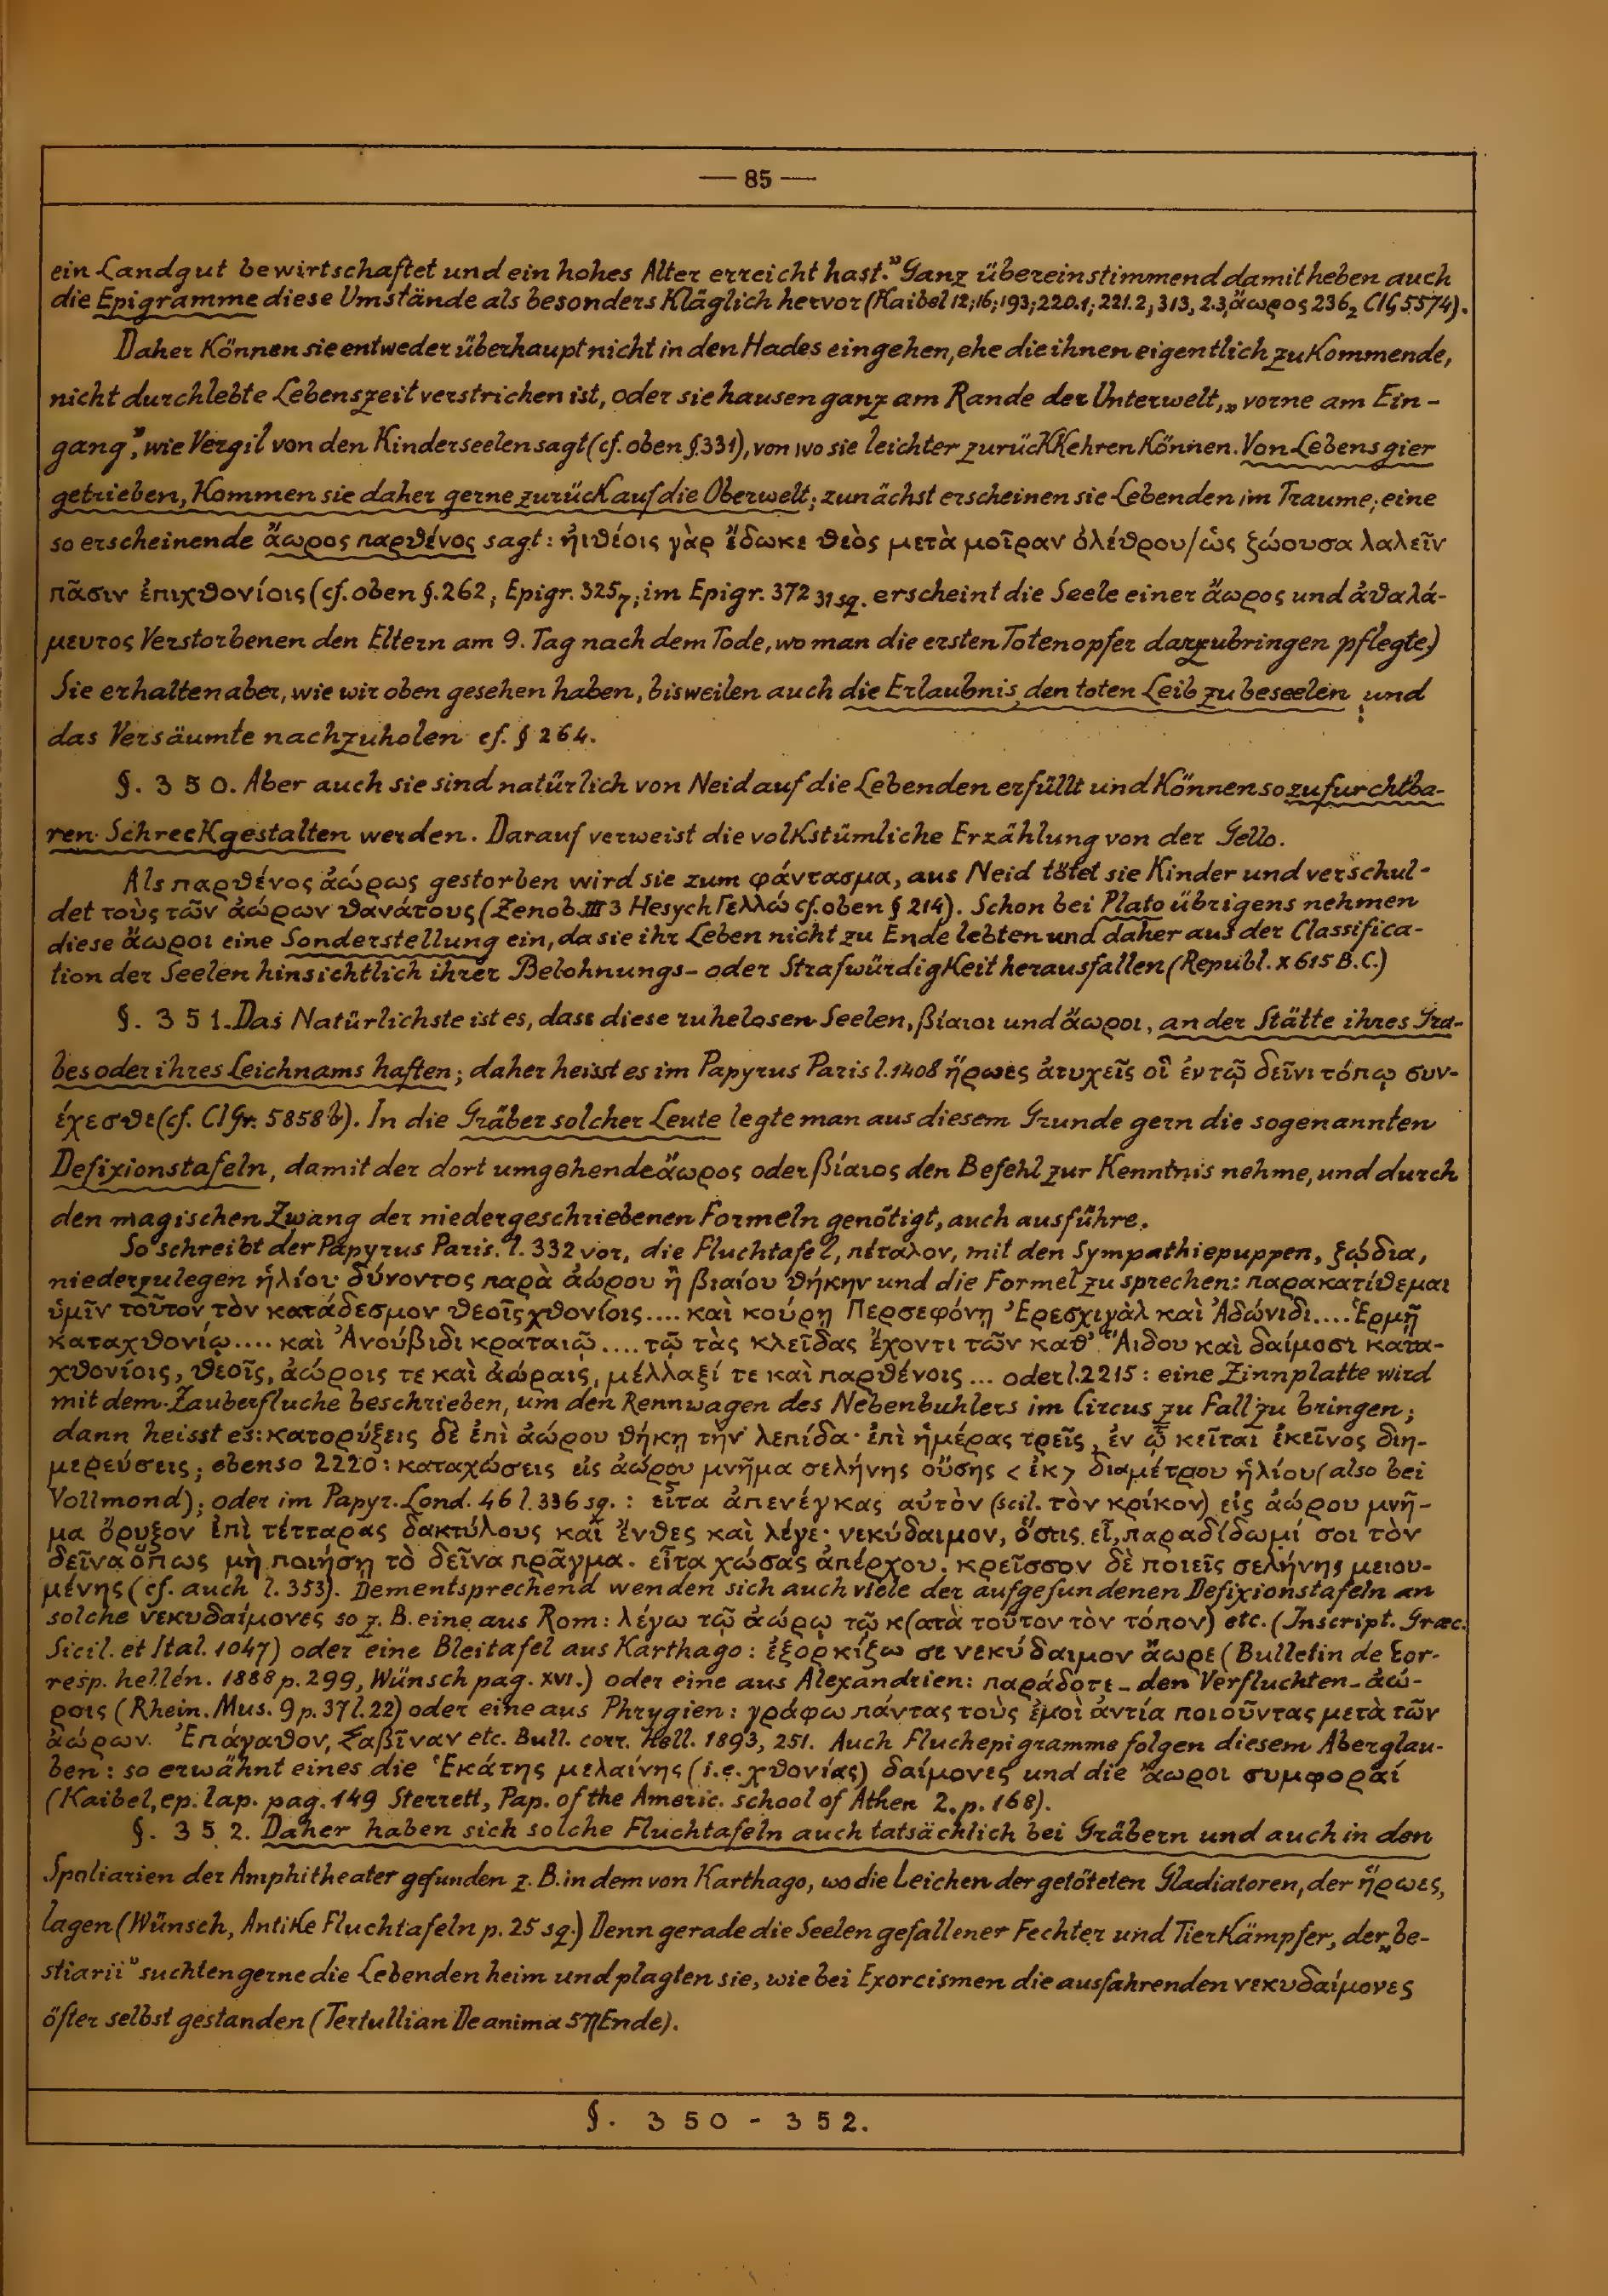 — 85 —
ein Landgut bewirtschaftet und ein hohes Alter erreicht hast.” Ganz übereinstimmend damit heben auch
die Epigramme diese Umstände als besonders kläglich hervor (Kaibel 12; 16; 193; 220.1; 221.2; 313, 2.3; ἄωρος 236₂ CIG 5574).
Daher können sie entweder überhaupt nicht in den Hades eingehen, ehe die ihnen eigentlich zukommende,
nicht durchlebte Lebenszeit verstrichen ist, oder sie hausen ganz am Rande der Unterwelt, „vorne am Ein-
gang”, wie Vergil von den Kinderseelen sagt (cf. oben §. 331), von wo sie leichter zurückkehren können. Von Lebensgier
getrieben, kommen sie daher gerne zurück auf die Oberwelt; zunächst erscheinen sie Lebenden im Traume; eine
so erscheinende ἄωρος παρθένος sagt: ἠιθέοις γὰρ ἔδωκε θεὸς μετὰ μοῖραν ὀλέθρου / ὡς ζώουσα λαλεῖν
πᾶσιν ἐπιχθονίοις (cf. oben §. 262, Epigr. 325₇; im Epigr. 372 31 sq. erscheint die Seele einer ἄωρος und ἀθαλά-
μευτος Verstorbenen den Eltern am 9. Tag nach dem Tode, wo man die ersten Totenopfer darzubringen pflegte)
Sie erhalten aber, wie wir oben gesehen haben, bisweilen auch die Erlaubnis, den toten Leib zu beseelen und
das Versäumte nachzuholen cf. § 264.
§. 350. Aber auch sie sind natürlich von Neid auf die Lebenden erfüllt und können so zu furchtba-
ren Schreckgestalten werden. Darauf verweist die volkstümliche Erzählung von der Gello.
Als παρθένος ἀώρως gestorben wird sie zum φάντασμα, aus Neid tötet sie Kinder und verschul-
det τοὺς τῶν ἀώρων θανάτους (Zenob. III 3 Hesych Γελλώ cf. oben § 214). Schon bei Plato übrigens nehmen
diese ἄωροι eine Sonderstellung ein, da sie ihr Leben nicht zu Ende lebten und daher aus der Classifica-
tion der Seelen hinsichtlich ihrer Belohnungs- oder Strafwürdigkeit herausfallen (Republ. X 615 B.C.)
§. 351. Das Natürlichste ist es, dass diese ruhelosen Seelen, βίαιοι und ἄωροι, an der Stätte ihres Gra-
bes oder ihres Leichnams haften; daher heisst es im Papyrus Paris l. 1408 ἥρωες ἀτυχεῖς οἳ ἐν τῷ δεῖνι τόπῳ συν-
έχεσθε (cf. CIGr. 5858 b). In die Gräber solcher Leute legte man aus diesem Grunde gern die sogenannten
Defixionstafeln, damit der dort umgehende ἄωρος oder βίαιος den Befehl zur Kenntnis nehme, und durch
den magischen Zwang der niedergeschriebenen Formeln genötigt, auch ausführe.
So schreibt der Papyrus Paris. l. 332 vor, die Fluchtafel, πέταλον, mit den Sympathiepuppen, ζῴδια,
niederzulegen ἡλίου δύνοντος παρὰ ἀώρου ἢ βιαίου θήκην und die Formel zu sprechen: παρακατίθεμαι
ὑμῖν τοῦτον τὸν κατάδεσμον θεοῖς χθονίοις.... καὶ κούρῃ Περσεφόνῃ Ἐρεσχιγὰλ καὶ Ἀδώνιδι.... Ἑρμῇ
καταχθονίῳ.... καὶ Ἀνούβιδι κραταιῷ.... τῷ τὰς κλεῖδας ἔχοντι τῶν καθ’ Ἅιδου καὶ δαίμοσι κατα-
χθονίοις, θεοῖς, ἀώροις τε καὶ ἀώραις, μέλλαξί τε καὶ παρθένοις ... oder l. 2215: eine Zinnplatte wird
mit dem Zauberfluche beschrieben, um den Rennwagen des Nebenbuhlers im Circus zu Fall zu bringen;
dann heisst es: κατορύξεις δὲ ἐπὶ ἀώρου θήκῃ τὴν λεπίδα· ἐπὶ ἡμέρας τρεῖς, ἐν ᾧ κεῖται ἐκεῖνος διη-
μερεύσεις; ebenso 2220: καταχώσεις εἰς ἀώρου μνῆμα σελήνης οὔσης <ἐκ> διαμέτρου ἡλίου (also bei
Vollmond); oder im Papyr. Lond. 46 l. 336 sq.: εἶτα ἀπενέγκας αὐτὸν (scil. τὸν κρίκον) εἰς ἀώρου μνῆ-
μα ὄρυξον ἐπὶ τέτταρας δακτύλους καὶ ἔνθες καὶ λέγε· νεκύδαιμον, ὅστις εἶ, παραδίδωμί σοι τὸν
δεῖνα ὅπως μὴ ποιήσῃ τὸ δεῖνα πρᾶγμα. εἶτα χώσας ἀπέρχου. κρεῖσσον δὲ ποιεῖς σελήνης μειου-
μένης (cf. auch l. 353). Dementsprechend wenden sich auch viele der aufgefundenen Defixionstafeln an
solche νεκυδαίμονες so z. B. eine aus Rom: λέγω τῷ ἀώρῳ τῷ κ(ατὰ τοῦτον τὸν τόπον) etc. (Inscript. Græc.
Sicil. et Ital. 1047) oder eine Bleitafel aus Karthago: ἐξορκίζω σε νεκύδαιμον ἄωρε (Bulletin de Cor-
resp. hellén. 1888 p. 299, Wünsch pag. XVI.) oder eine aus Alexandrien: παράδοτε – den Verfluchten – ἀώ-
ροις (Rhein. Mus. 9 p. 37 l. 22) oder eine aus Phrygien: γράφω πάντας τοὺς ἐμοὶ ἀντία ποιοῦντας μετὰ τῶν
ἀώρων. Ἐπάγαθον, Σαβῖναν etc. Bull. corr. Hell. 1893, 251. Auch Fluchepigramme folgen diesem Aberglau-
ben: so erwähnt eines die Ἑκάτης μελαίνης (i.e. χθονίας) δαίμονες und die ἄωροι συμφοραί
(Kaibel, ep. lap. pag. 149 Sterrett, Pap. of the Americ. school of Athen 2. p. 168).
§. 352. Daher haben sich solche Fluchtafeln auch tatsächlich bei Gräbern und auch in den
Spoliarien der Amphitheater gefunden z. B. in dem von Karthago, wo die Leichen der getöteten Gladiatoren, der ἥρωες,
lagen (Wünsch, Antike Fluchtafeln p. 25 sq.) Denn gerade die Seelen gefallener Fechter und Tierkämpfer, der „be-
stiarii” suchten gerne die Lebenden heim und plagten sie, wie bei Exorcismen die ausfahrenden νεκυδαίμονες
öfter selbst gestanden (Tertullian De anima 57 Ende).
§. 350 - 352.